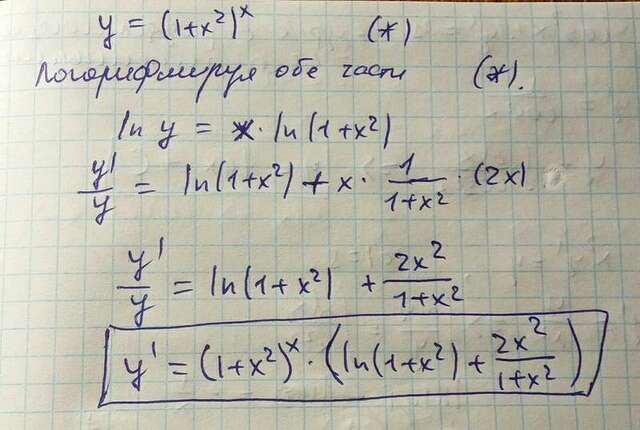 y = (1+x²)ˣ (*)
Логарифмируя обе части (*).
ln y = x · ln(1+x²)
y'/y = ln(1+x²) + x · 1/(1+x²) · (2x)
y'/y = ln(1+x²) + 2x²/(1+x²)
y' = (1+x²)ˣ · (ln(1+x²) + 2x²/(1+x²))